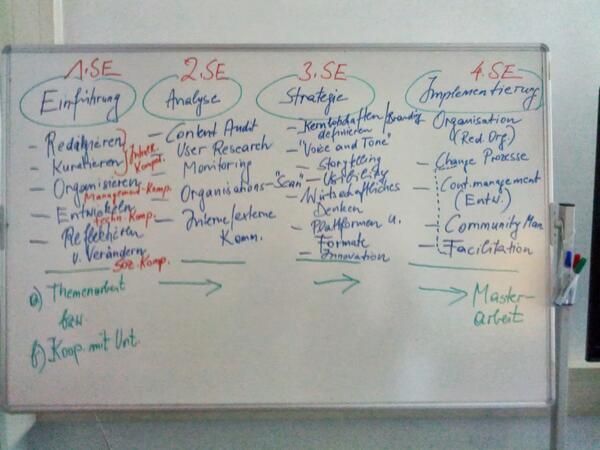 1.SE
Einführung
– Redaktieren
– Kuratieren
Inhaltl. Kompet.
– Organisieren
Management-Komp.
– Entwickeln
techn. Komp.
– Reflektieren
u. Verändern
Soz. Komp.
a) Themenarbeit
bzw.
b) Koop. mit Unt.
2.SE
Analyse
– Content Audit
– User Research
– Monitoring
– Organisations-"Scan"
– Interne/externe
Komm.
3.SE
Strategie
– Kernbotschaften/Branding
definieren
– "Voice and Tone"
– Storytelling
– Usability
– Wirtschaftliches
Denken
– Plattformen u.
Formate
– Innovation
4.SE
Implementierung
– Organisation
(Red. Org.)
– Change Prozesse
– Cont. management
(Entw.)
– Community Man
– Facilitation
Master-
arbeit